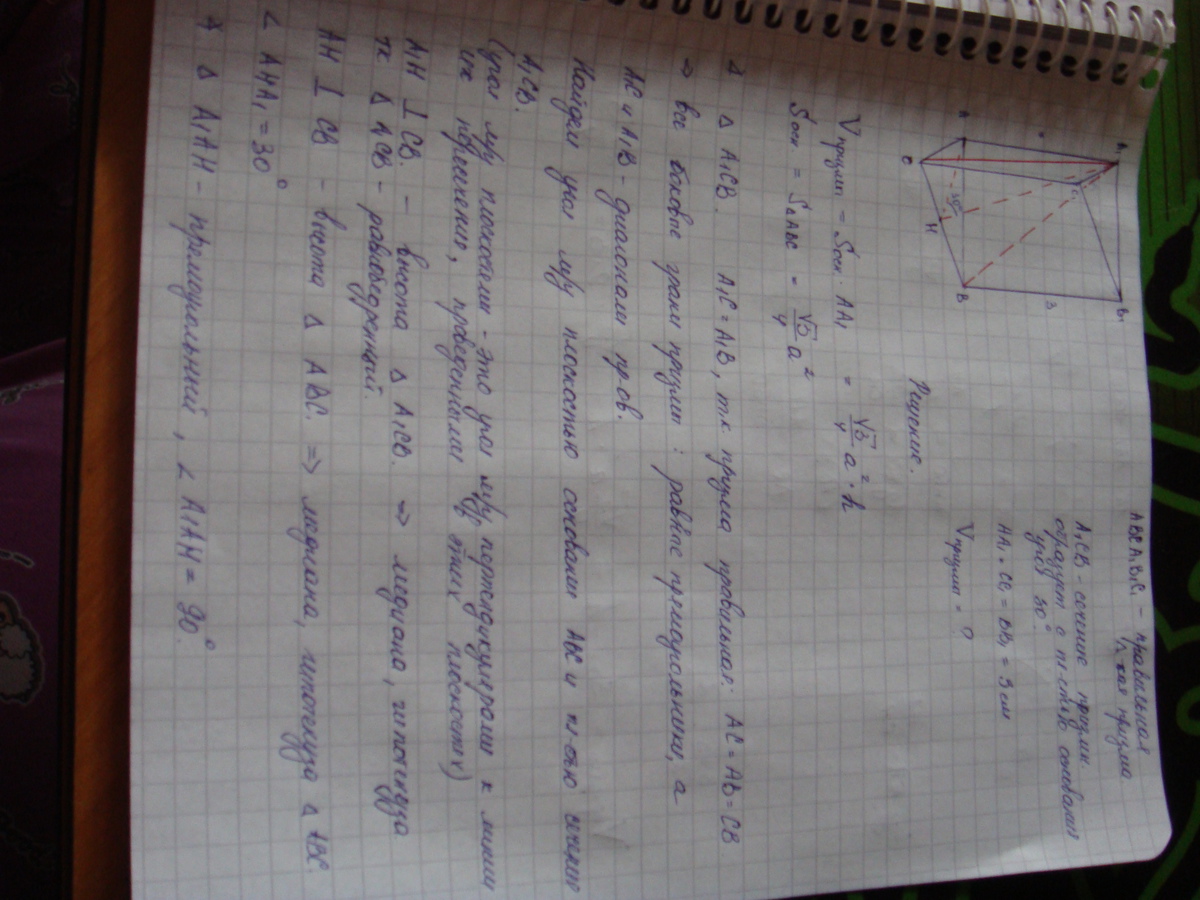 ABCA₁B₁C₁ - правильная
△-ная призма
A₁CB - сечение призмы.
образует с пл-стью основания
угол 30°
AA₁ = CC₁ = BB₁ = 3 см
Vпризмы = ?
A₁
B₁
C₁
3
A
30°
C
H
B
Решение.
Vпризмы = Sосн · AA₁ = √3/4 a² · h
Sосн = S△ABC = √3/4 a²
△ A₁CB. A₁C = A₁B, т.к призма правильная: AC = AB = CB
⇒ все боковые грани призмы: равные прямоугольники, а
A₁C и A₁B - диагонали пр-ов.
Найдем угол м/у плоскостью основания ABC и пл-тью сечения
A₁CB.
(угол м/у плоскостями - это угол м/у перпендикулярами к линии
их пересечения, проведенными в этих плоскостях)
A₁H ⊥ CB. - высота △ A₁CB. ⇒ медиана, гипотенуза
тк △ A₁CB - равнобедренный.
AH ⊥ CB - высота △ ABC. ⇒ медиана, гипотенуза △ ABC
∠ AHA₁ = 30°
△ A₁AH - прямоугольный, ∠ A₁AH = 90°.